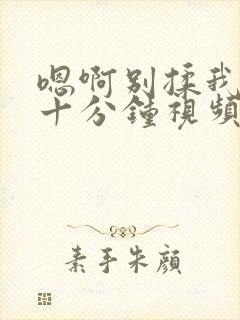 嗯啊别揉我
十分鐘視頻
素手朱顔